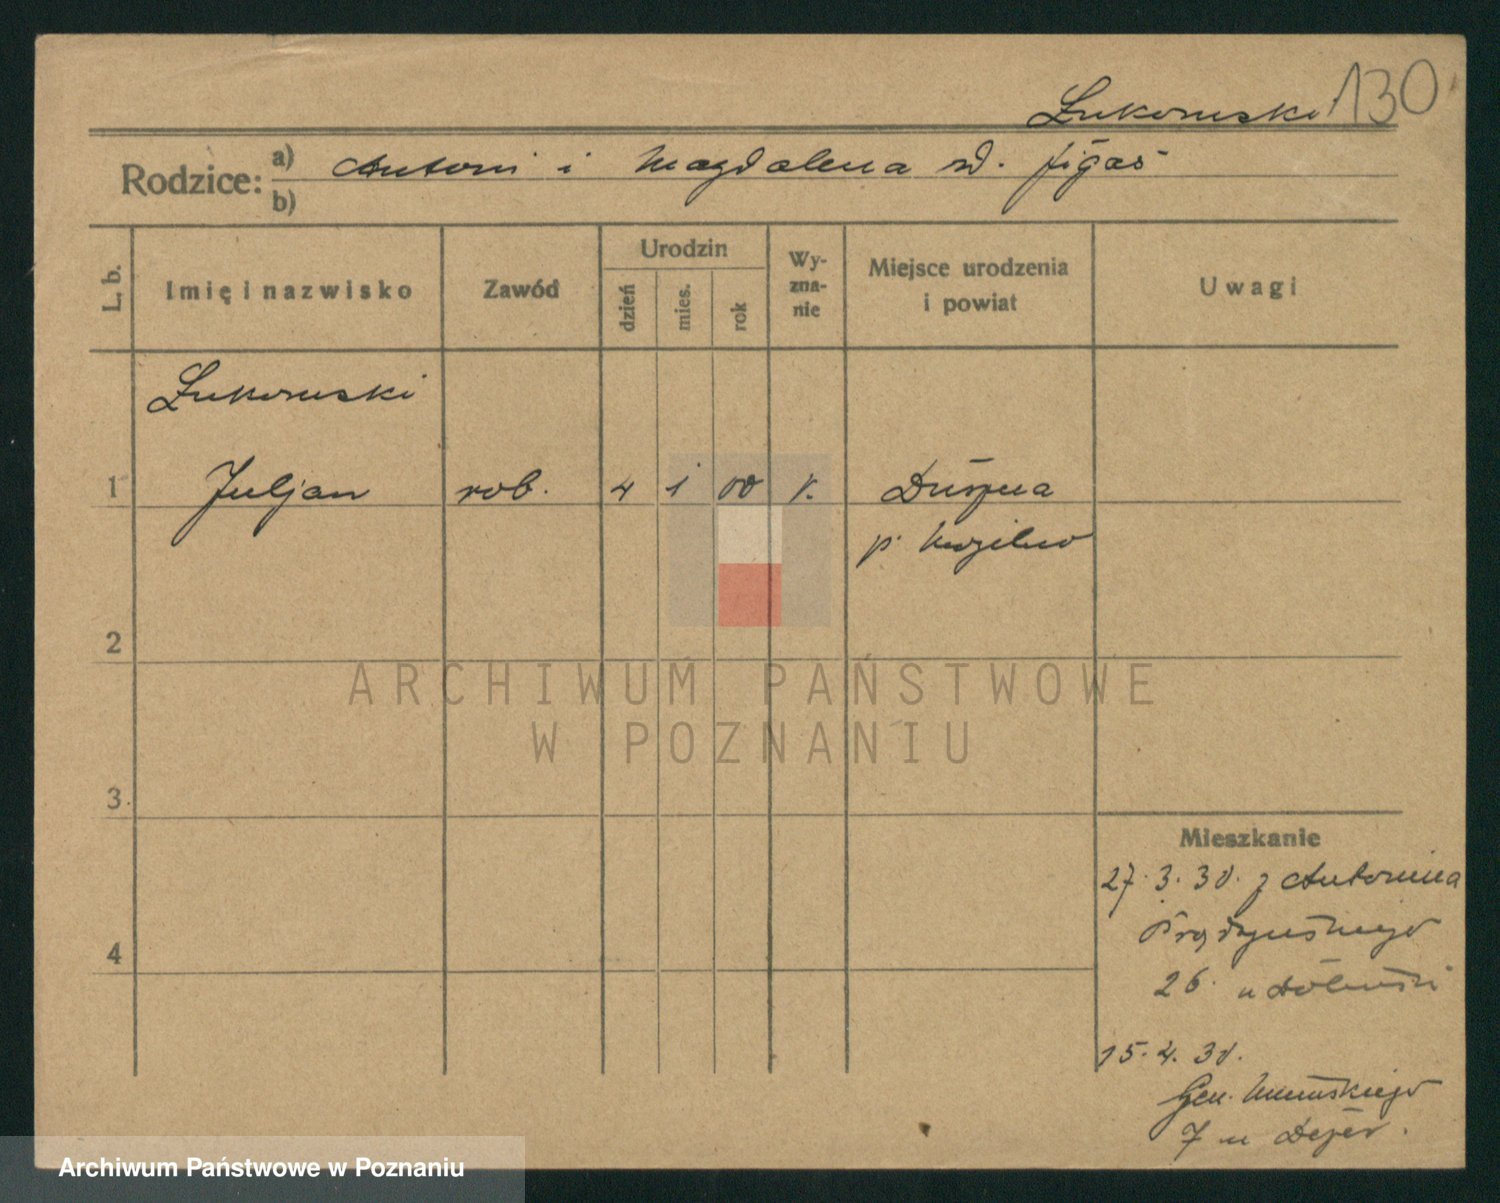 Łukomski 130
Rodzice: a) Antoni i Magdalena
b)
L. b.
Imię i nazwisko
Zawód
Urodzin
dzień
mies.
rok
Wy-
zna-
nie
Miejsce urodzenia
i powiat
Uwagi
Łukomski
1 Juljan rob. 4 1 00 Duszna
p. Mogilno
2
3
4
Mieszkanie
27. 3. 30. z Antonina
Prądzyńskiego
26.
15. 4. 30.
Gen. Umińskiego
7 u
ARCHIWUM PAŃSTWOWE
W POZNANIU
Archiwum Państwowe w Poznaniu